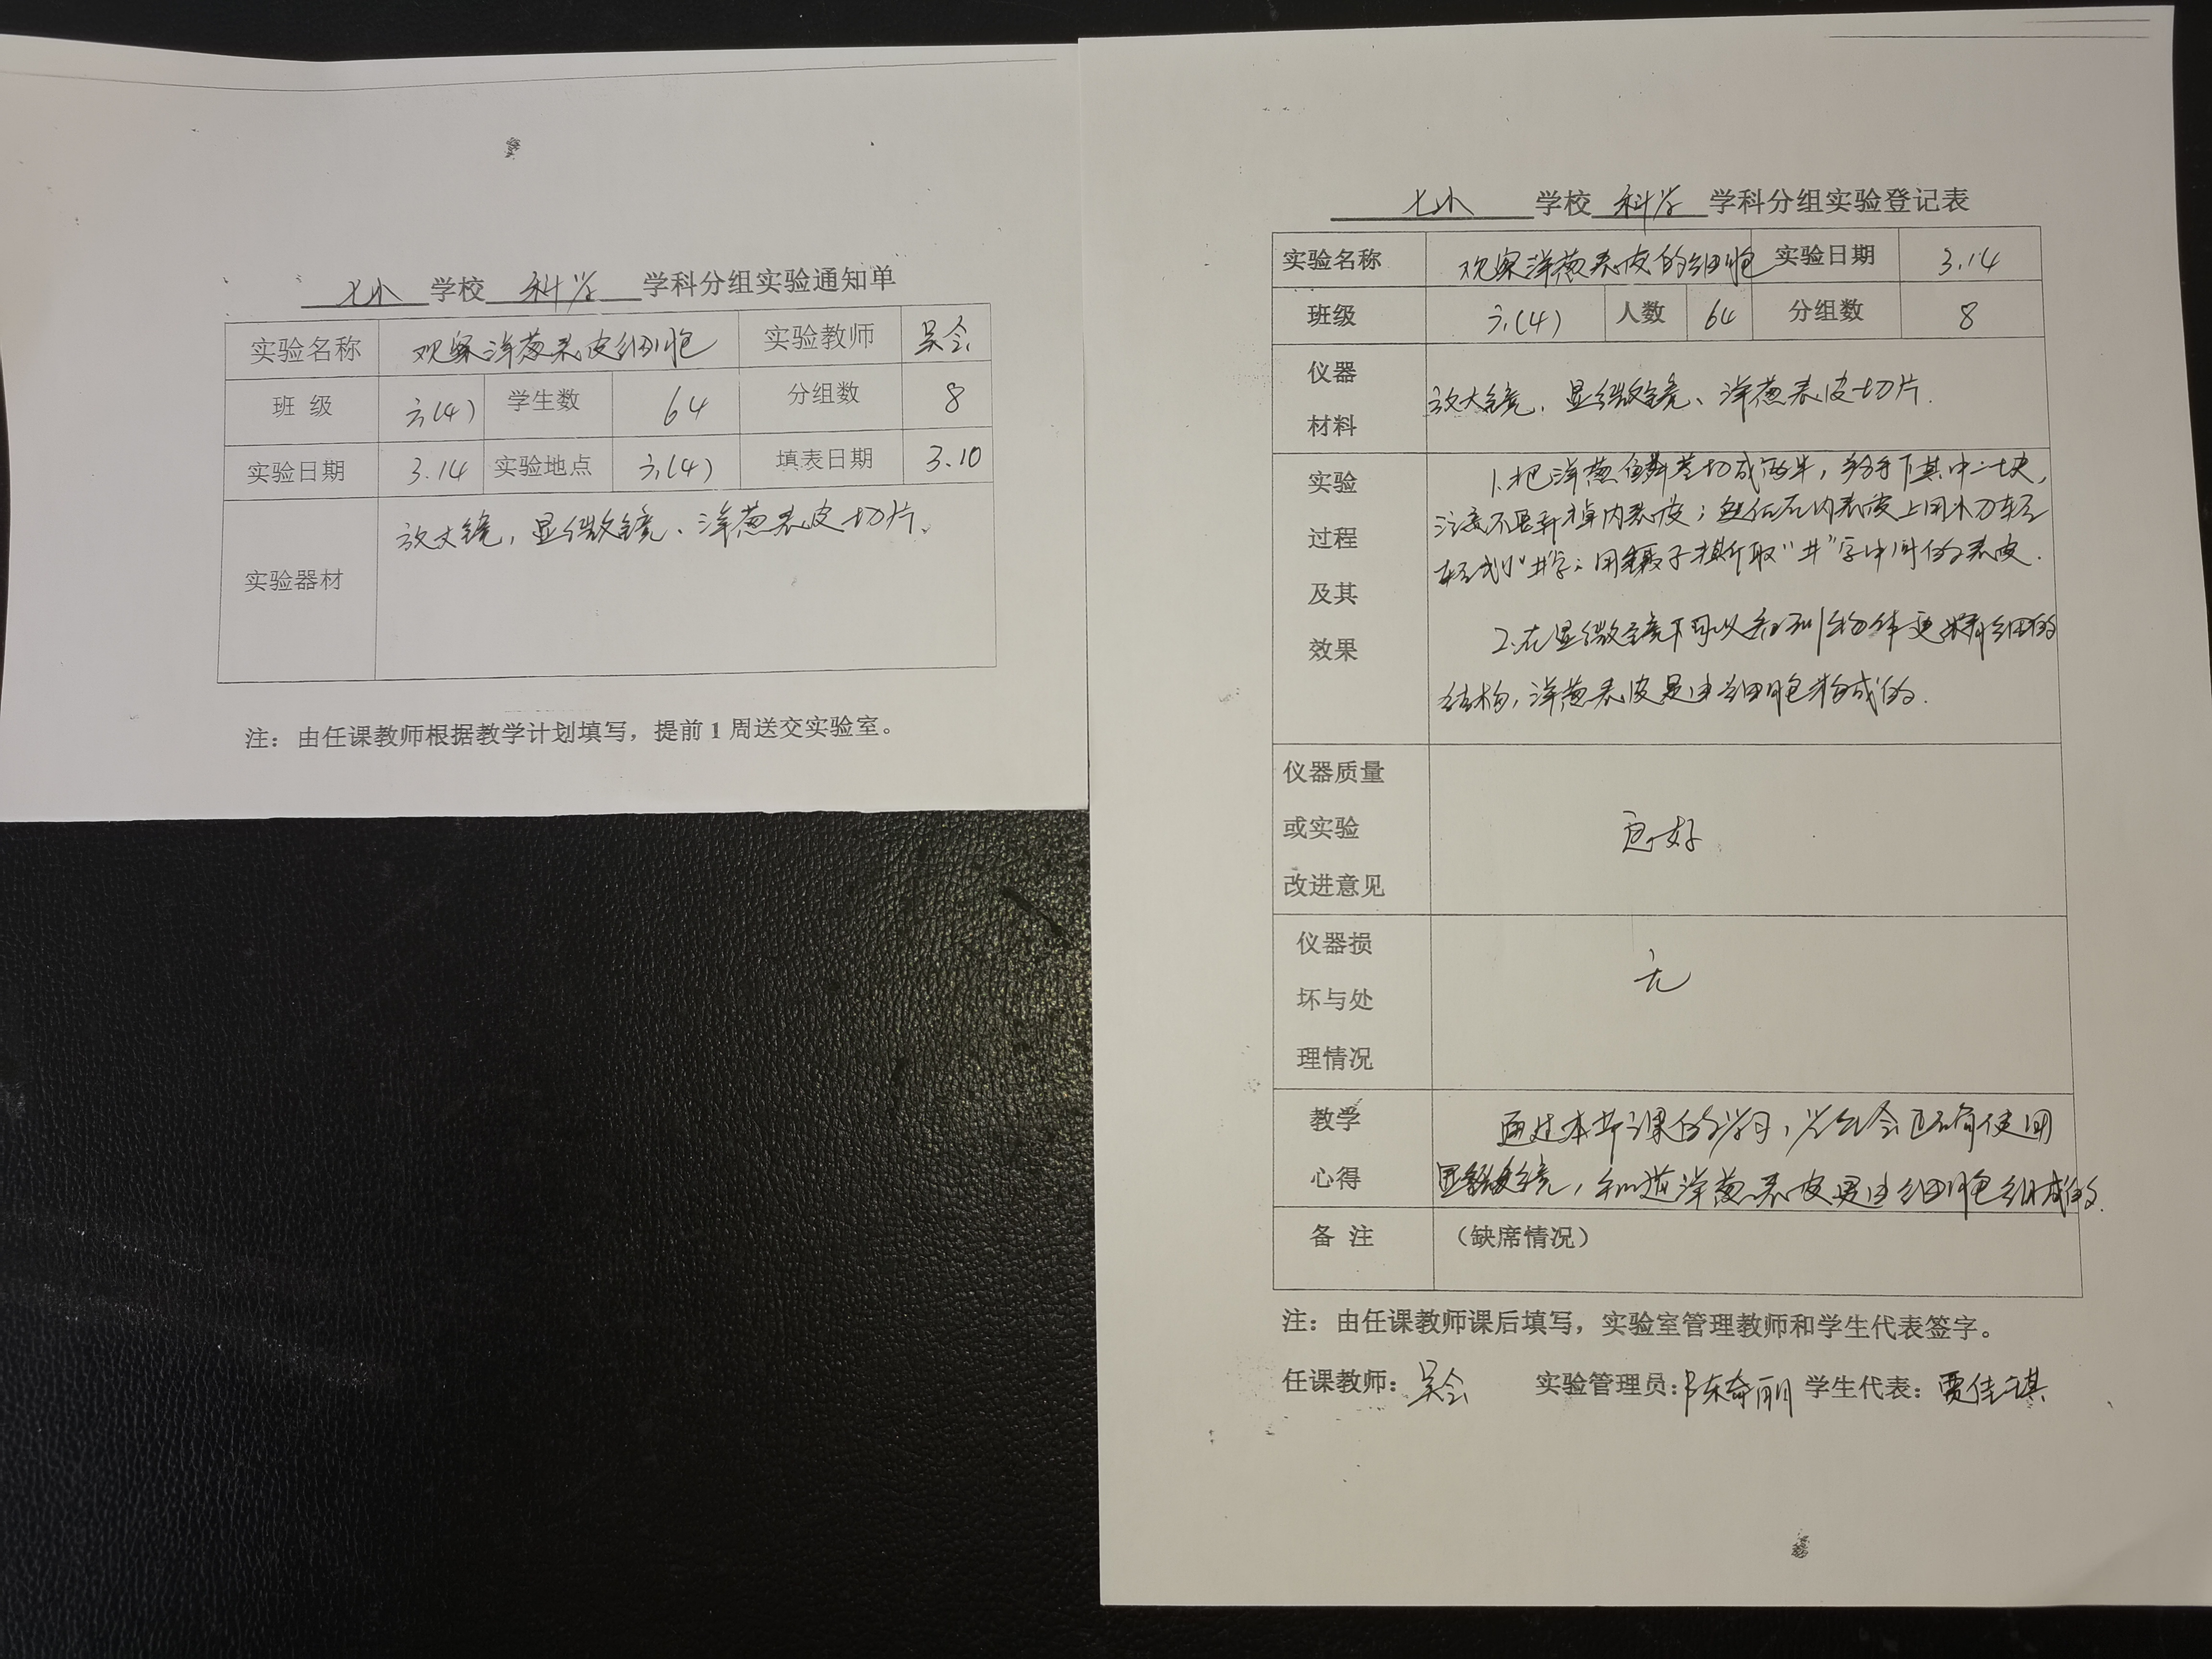 七小 学校 科学 学科分组实验通知单
实验名称 观察洋葱表皮细胞 实验教师 吴会
班 级 六(4) 学生数 64 分组数 8
实验日期 3.14 实验地点 六(4) 填表日期 3.10
实验器材 放大镜，显微镜、洋葱表皮切片。
注：由任课教师根据教学计划填写，提前1周送交实验室。
七小 学校 科学 学科分组实验登记表
实验名称 观察洋葱表皮的细胞 实验日期 3.14
班级 六(4) 人数 64 分组数 8
仪器
材料
放大镜、显微镜、洋葱表皮切片.
实验
过程
及其
效果
1.把洋葱鳞茎切成两半，掰下其中一块，
注意不要弄掉内表皮；然后在内表皮上用小刀轻
轻划小"井"字；用镊子撕取"井"字中间的表皮.
2.在显微镜下可以看到物体更精细的
结构，洋葱表皮是由细胞构成的.
仪器质量
或实验
改进意见
良好
仪器损
坏与处
理情况
无
教学
心得
通过本节课的学习，学生会正确使用
显微镜，知道洋葱表皮是由细胞组成的.
备 注 （缺席情况）
注：由任课教师课后填写，实验室管理教师和学生代表签字。
任课教师：吴会 实验管理员：陈奇丽 学生代表：贾佳琪